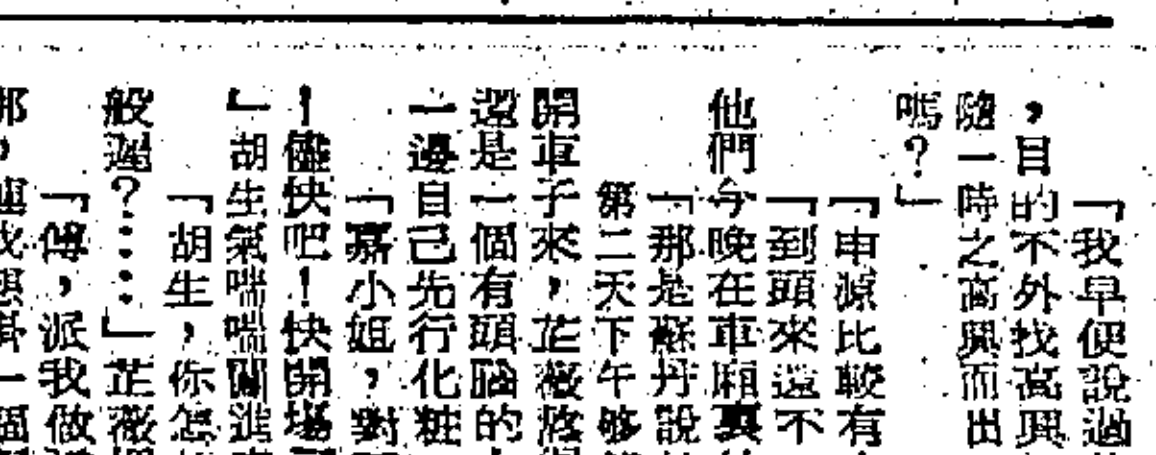 「我早便說過
，目的不外找高興
隨一時之高興而出
嗎？」
「申源比較有
「到頭來還不
他們今晚在車廂裏
「那是蘇丹說
第二天下午够
開車子來，芷薇
還是一個有頭腦的
一邊自己先行化粧
「嘉小姐，對
！儘快吧！快開場
」胡生氣喘喘闖進
「胡生，你怎
般遲？……」芷薇
「傅，派我做
那，